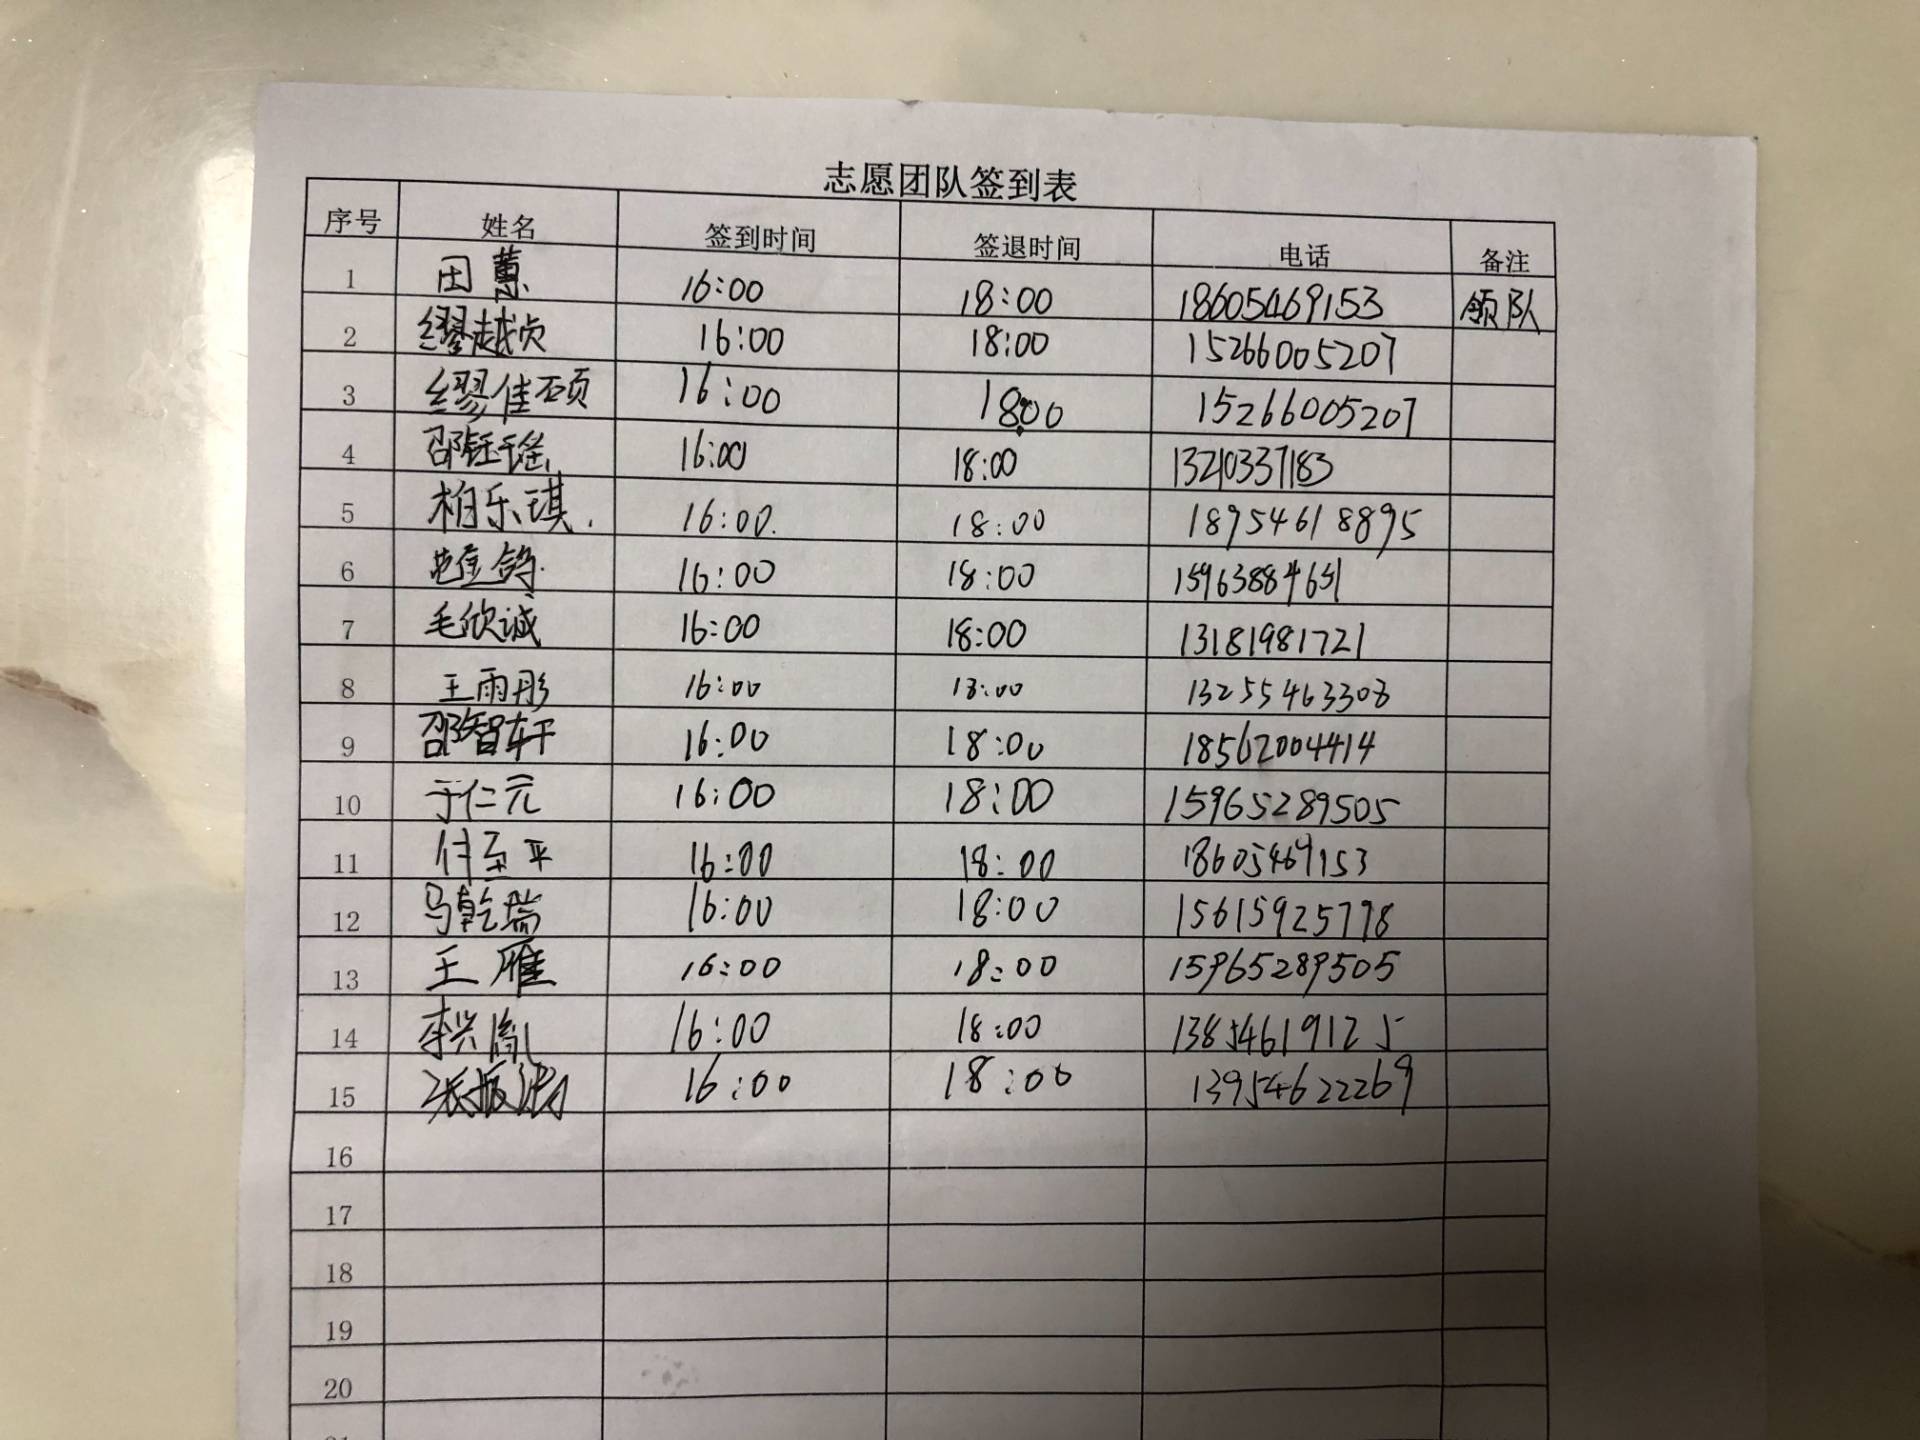 志愿团队签到表
序号 姓名 签到时间 签退时间 电话 备注
1 田蕙 16:00 18:00 18605469153 领队
2 缪越贞 16:00 18:00 15266005207
3 缪佳硕 16:00 18:00 15266005207
4 邵钰瑶 16:00 18:00 13210337183
5 柏乐琪. 16:00. 18:00 18954618895
6 16:00 18:00 15963884651
7 毛欣诚 16:00 18:00 13181981721
8 王雨彤 16:00 18:00 13255463308
9 邵智轩 16:00 18:00 18562004414
10 于仁元 16:00 18:00 15965289505
11 付至平 16:00 18:00 18605469153
12 马乾瑞 16:00 18:00 15615925778
13 王雁 16:00 18:00 15965289505
14 李兴胤 16:00 18:00 13854619125
15 张振 16:00 18:00 13954622269
16
17
18
19
20